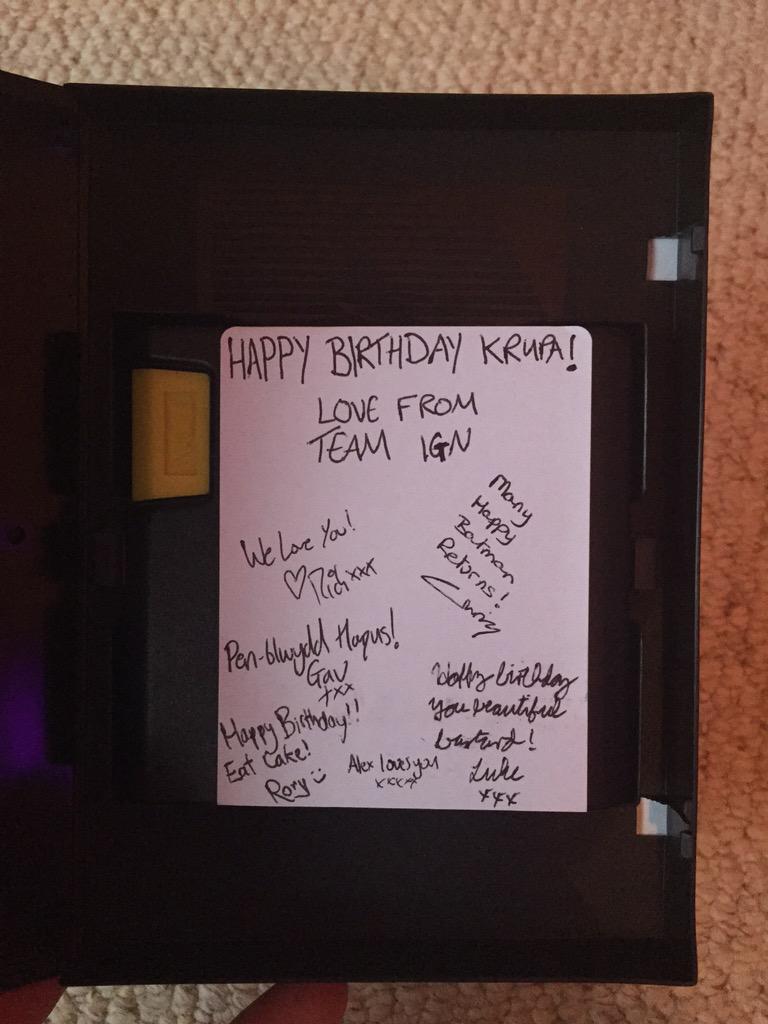 HAPPY BIRTHDAY KRUPA!
LOVE FROM
TEAM IGN
Many
Happy
Batman
Returns!
We Love You!
xxx
Pen-blwydd Hapus!
Gav
xxx
Happy Birthday!!
Eat Cake!
Rory
Alex loves you
xxxx
Happy birthday
you beautiful
bastard!
Luke
xxx